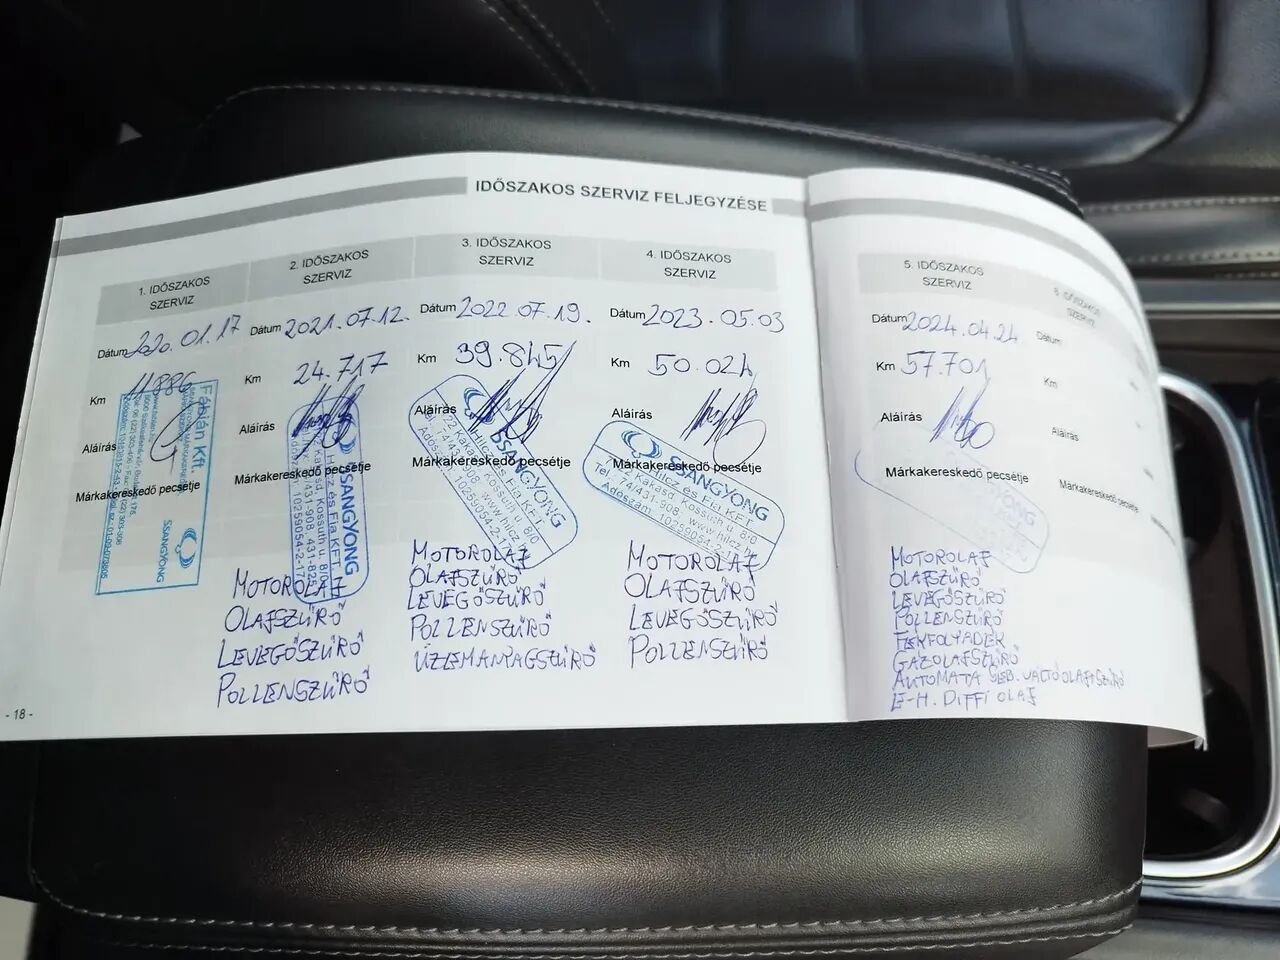 IDŐSZAKOS SZERVIZ FELJEGYZÉSE
1. IDŐSZAKOS
SZERVIZ
Dátum 2020.01.17
Km 11.886
Aláírás
Márkakereskedő pecsétje
Fábián Kft
SSANGYONG
2. IDŐSZAKOS
SZERVIZ
Dátum 2021.07.12.
Km 24.717
Aláírás
Márkakereskedő pecsétje
SSANGYONG
Hilcz és Fia KFT
10259054-2-17
MOTOROLAJ
OLAJSZŰRŐ
LEVEGŐSZŰRŐ
POLLENSZŰRŐ
3. IDŐSZAKOS
SZERVIZ
Dátum 2022.07.19.
Km 39.845
Aláírás
Márkakereskedő pecsétje
SSANGYONG
Hilcz és Fia KFT
MOTOROLAJ
OLAJSZŰRŐ
LEVEGŐSZŰRŐ
POLLENSZŰRŐ
ÜZEMANYAGSZŰRŐ
4. IDŐSZAKOS
SZERVIZ
Dátum 2023.05.03
Km 50.024
Aláírás
Márkakereskedő pecsétje
SSANGYONG
Hilcz és Fia KFT
Kakasd, Kossuth u. 8/0
Tel. 74/431-908 www.hilcz.hu
Adószám: 10259054-2-
MOTOROLAJ
OLAJSZŰRŐ
LEVEGŐSZŰRŐ
POLLENSZŰRŐ
5. IDŐSZAKOS
SZERVIZ
Dátum 2024.04.24
Km 57.701
Aláírás
Márkakereskedő pecsétje
MOTOROLAJ
OLAJSZŰRŐ
LEVEGŐSZŰRŐ
POLLENSZŰRŐ
FÉKFOLYADÉK
GÁZOLAJSZŰRŐ
AUTOMATA SEB. VÁLTÓOLAJ+SZŰRŐ
E-H. DIFFI OLAJ
6. IDŐSZAKOS
SZERVIZ
Dátum
Km
Aláírás
Márkakereskedő pecsétje
- 18 -